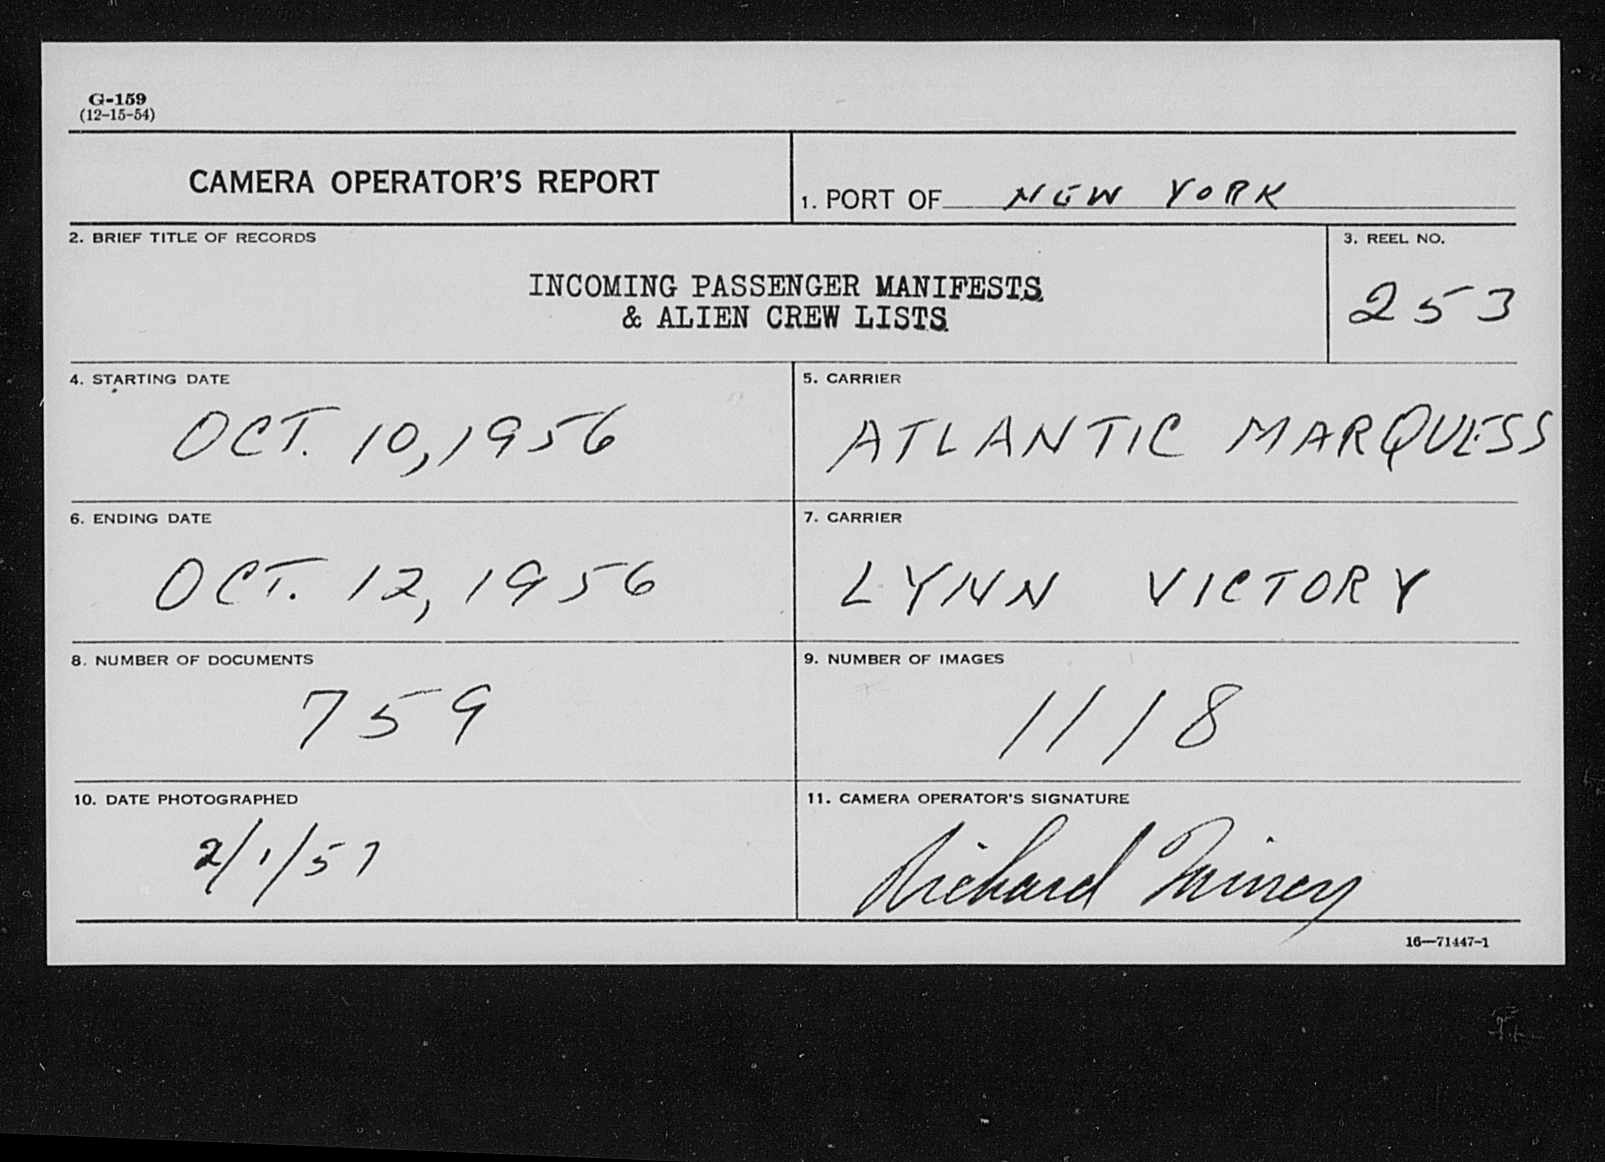 G-159
(12-15-54)
CAMERA OPERATOR'S REPORT
1. PORT OF NEW YORK
2. BRIEF TITLE OF RECORDS
INCOMING PASSENGER MANIFESTS
& ALIEN CREW LISTS
3. REEL NO.
253
4. STARTING DATE
OCT. 10, 1956
5. CARRIER
ATLANTIC MARQUESS
6. ENDING DATE
OCT. 12, 1956
7. CARRIER
LYNN VICTORY
8. NUMBER OF DOCUMENTS
759
9. NUMBER OF IMAGES
1118
10. DATE PHOTOGRAPHED
2/1/57
11. CAMERA OPERATOR'S SIGNATURE
Richard
16—71447-1